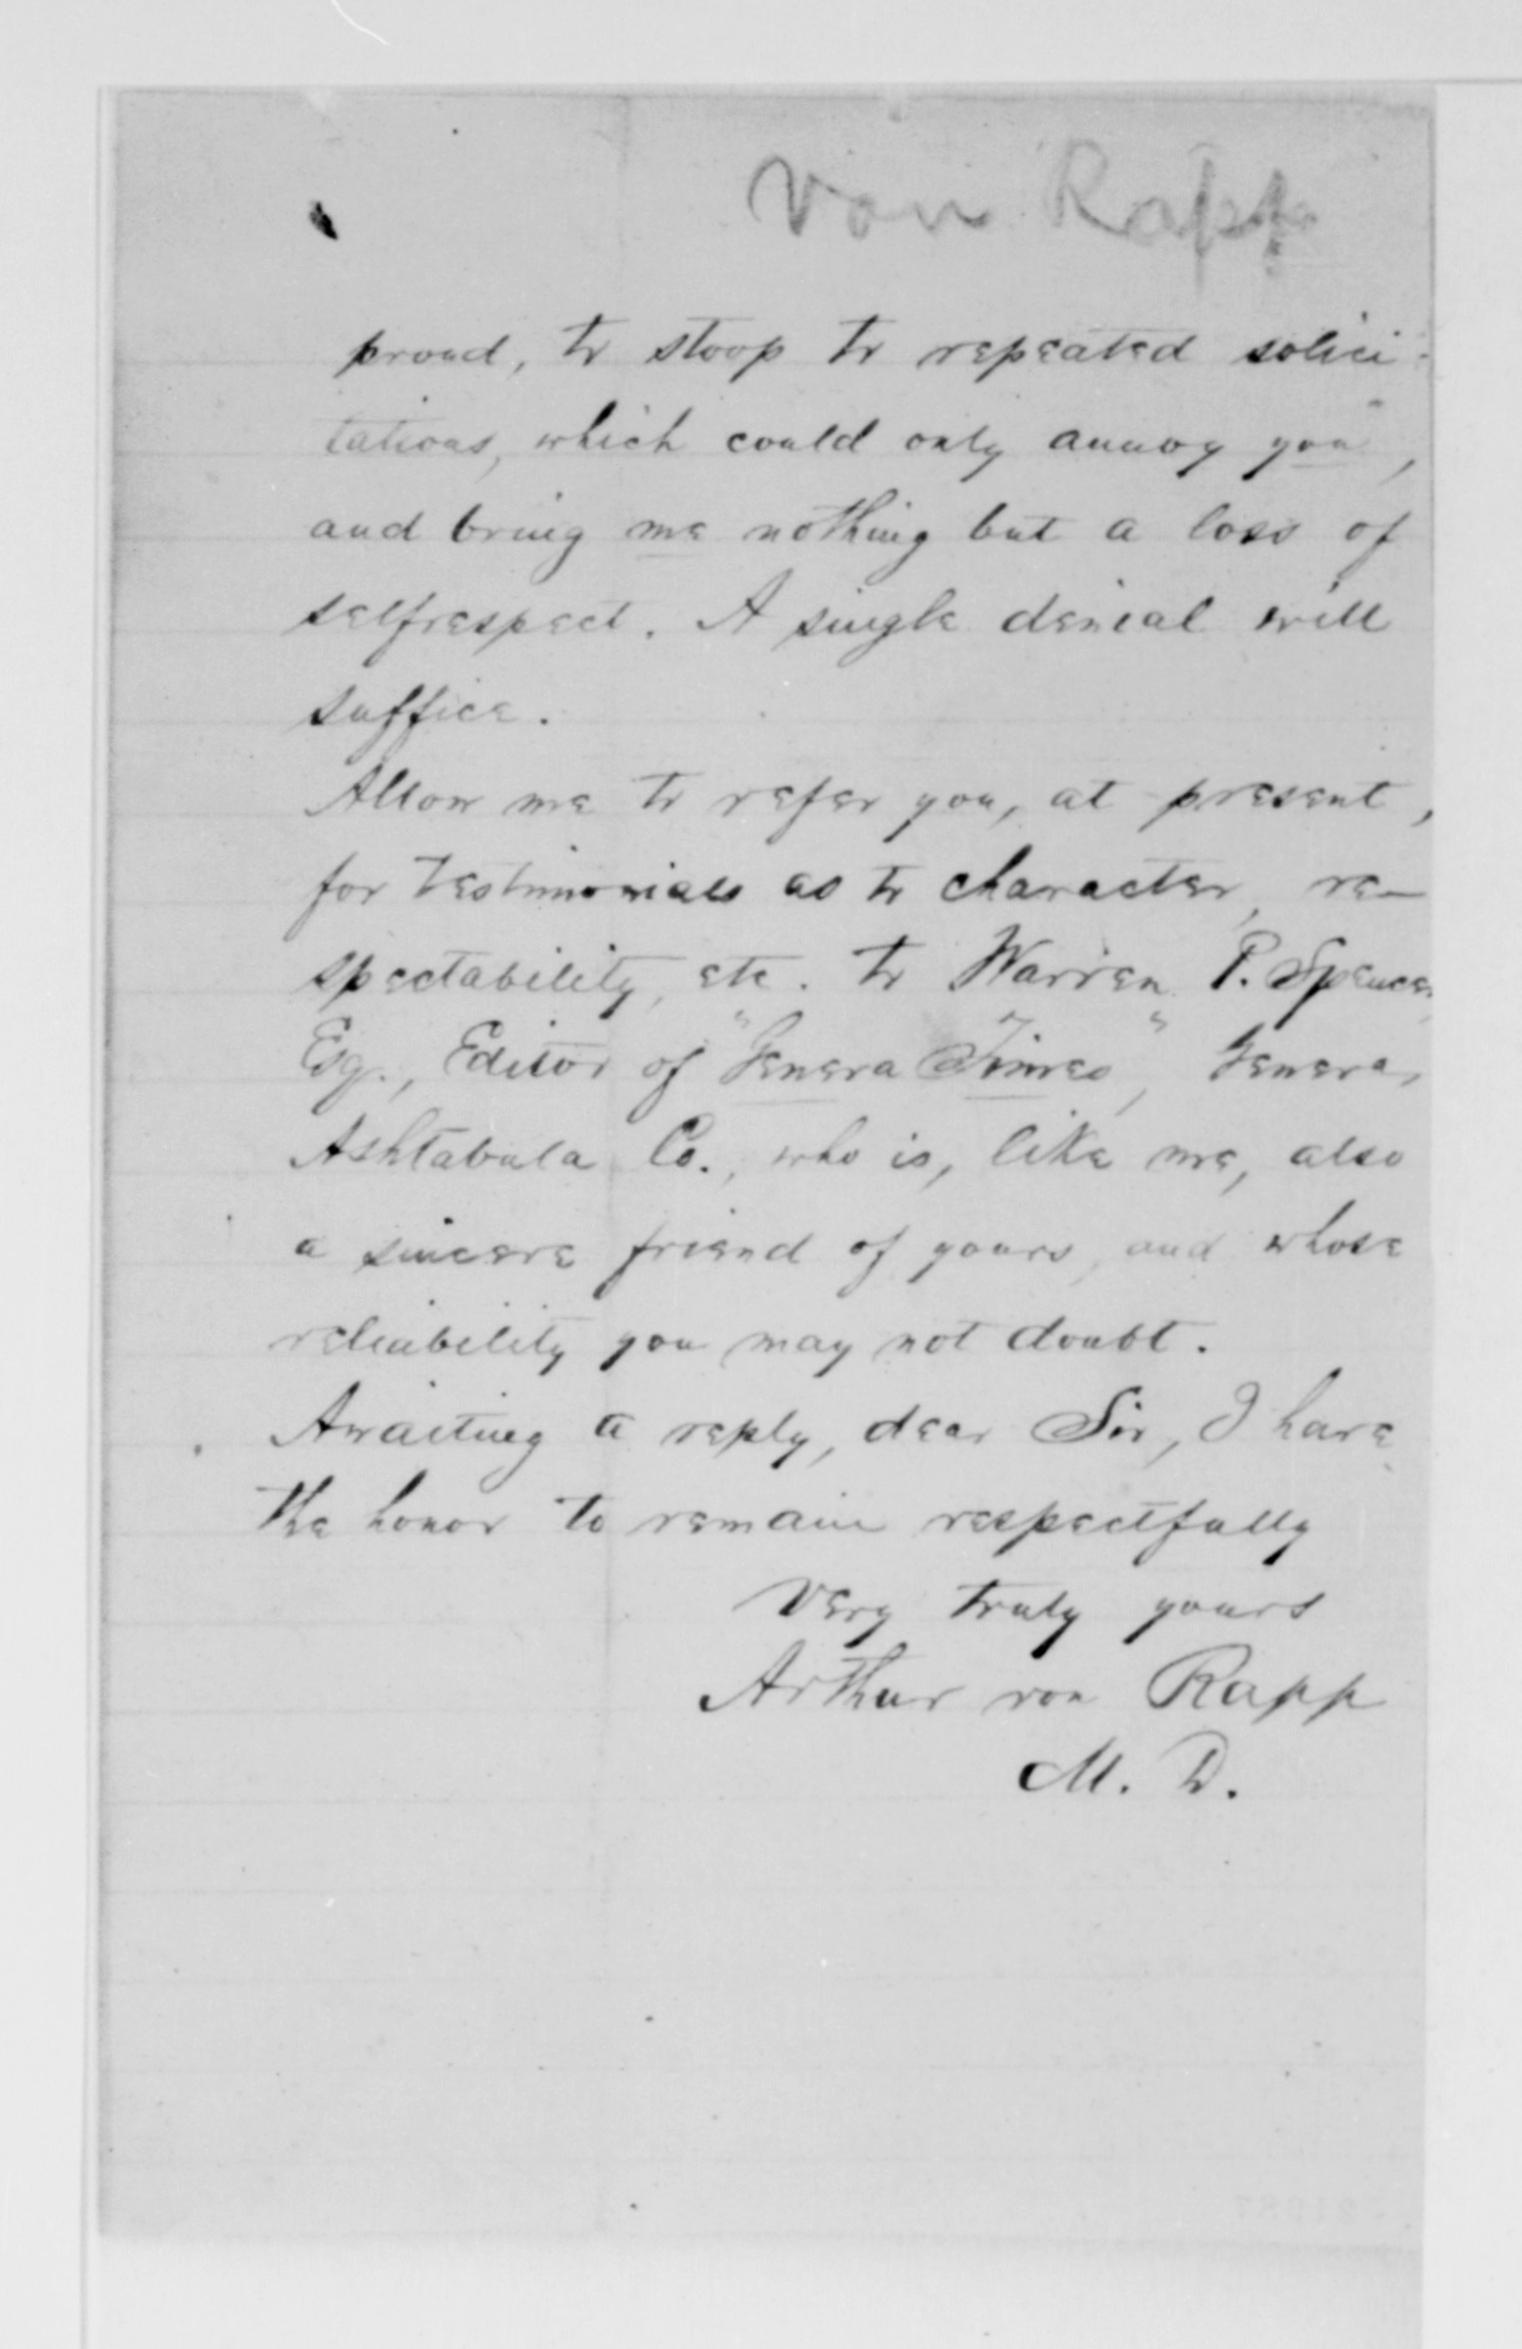 Von Rapp
proud, to stoop to repeated solici-
tations, which could only annoy you,
and bring me nothing but a loss of
selfrespect. A single denial will
suffice.
Allow me to refer you, at present,
for testimonials as to character, re-
spectability, etc. to Warren P. Spencer
Esq., Editor of "Geneva Times", Geneva,
Ashtabula Co., who is, like me, also
a sincere friend of yours, and whose
reliability you may not doubt.
Awaiting a reply, dear Sir, I have
the honor to remain respectfully
Very truly yours
Arthur von Rapp
M. D.